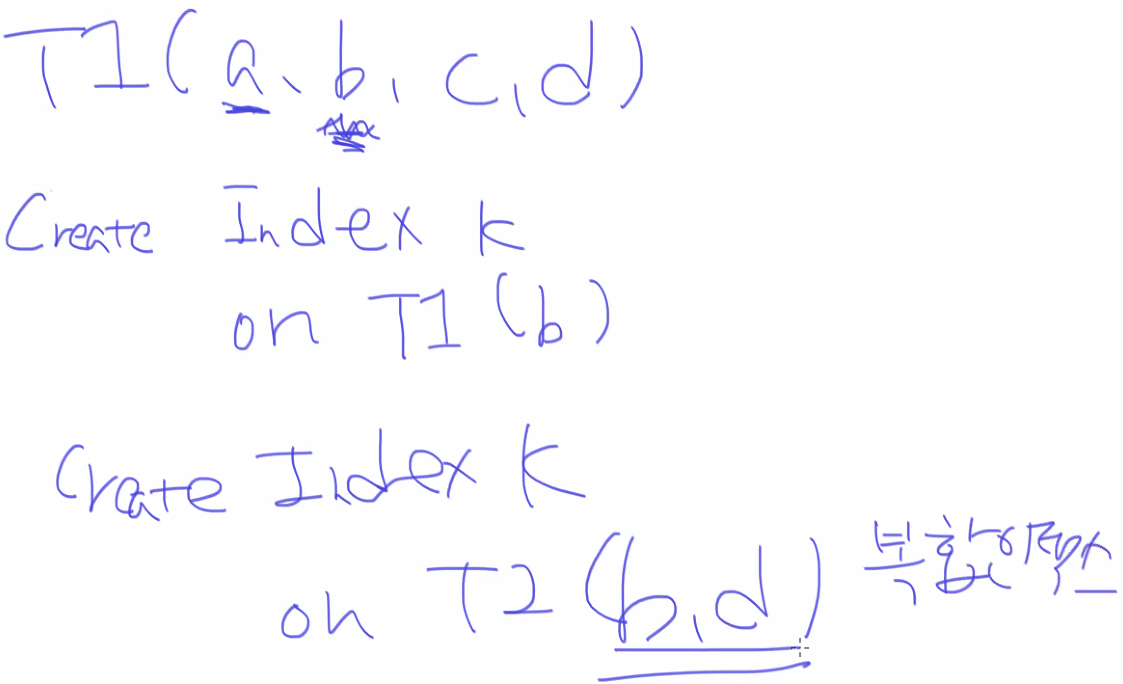 T1(a, b, c, d)
Create Index k
on T1(b)
Create Index k
on T2(b, d) 복합인덱스